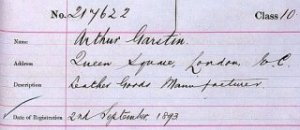 No. 217622 Class 10
Name Arthur Garstin.
Address Queen Square, London, W.C.
Description Leather Goods Manufacturer
Date of Registration 2nd September 1893